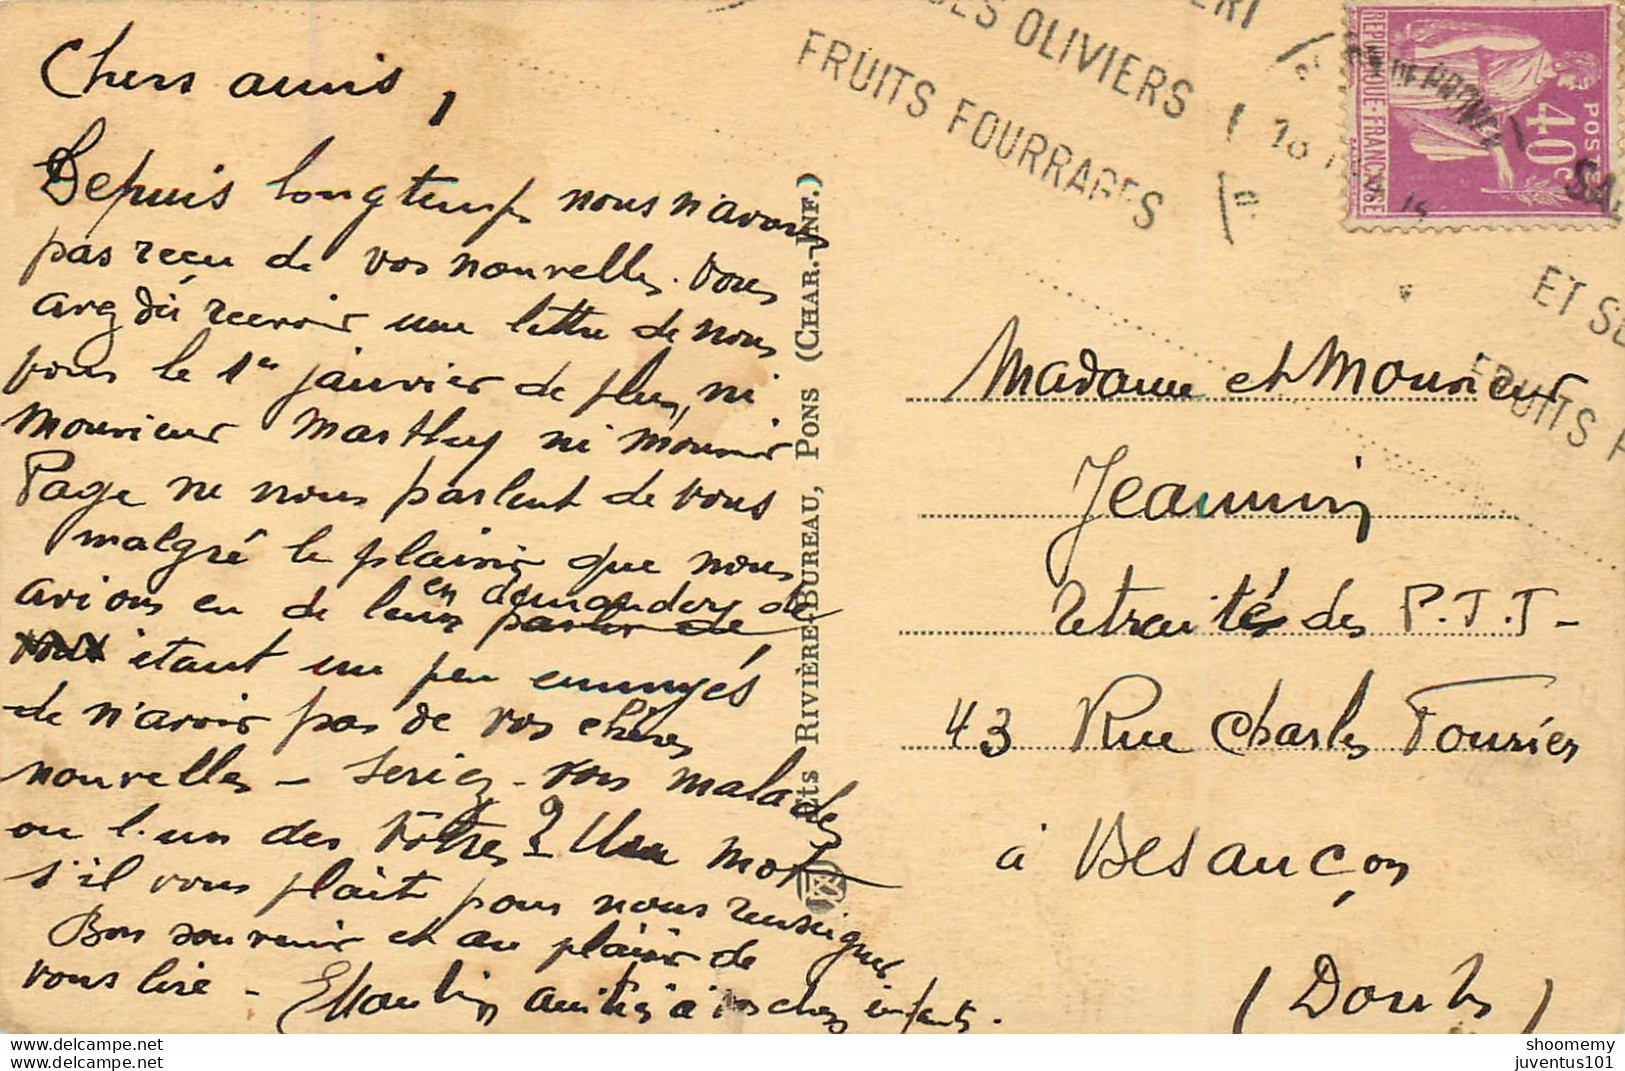 Chers amis,
Depuis longtemps nous n'avons
pas reçu de vos nouvelles. Vous
avez dû recevoir une lettre de nous
pour le 1er janvier de plus, ni
Monsieur Marthey ni Monsieur
Page ne nous parlent de vous
malgré le plaisir que nous
avions eu de leur en demander de
parler de
vous étant un peu ennuyés
de n'avoir pas de vos chères
nouvelles - Seriez-vous malades
ou l'un des vôtres? Un mot
s'il vous plait pour nous renseigner
Bon souvenir et au plaisir de
vous lire - amitiés à vos chers enfants.
Ets RIVIÈRE-BUREAU, PONS (CHAR.-INF.)
DES OLIVIERS
FRUITS FOURRAGES
REPUBLIQUE-FRANCAISE
POSTES
40c
SAL
ET SE
FRUITS F
Madame et Monsieur
Jeannin
retraités des P.T.T-
43 Rue Charles Fourier
à Besançon
(Doubs)
https://www.delcampe.net
shoomemy
juventus101